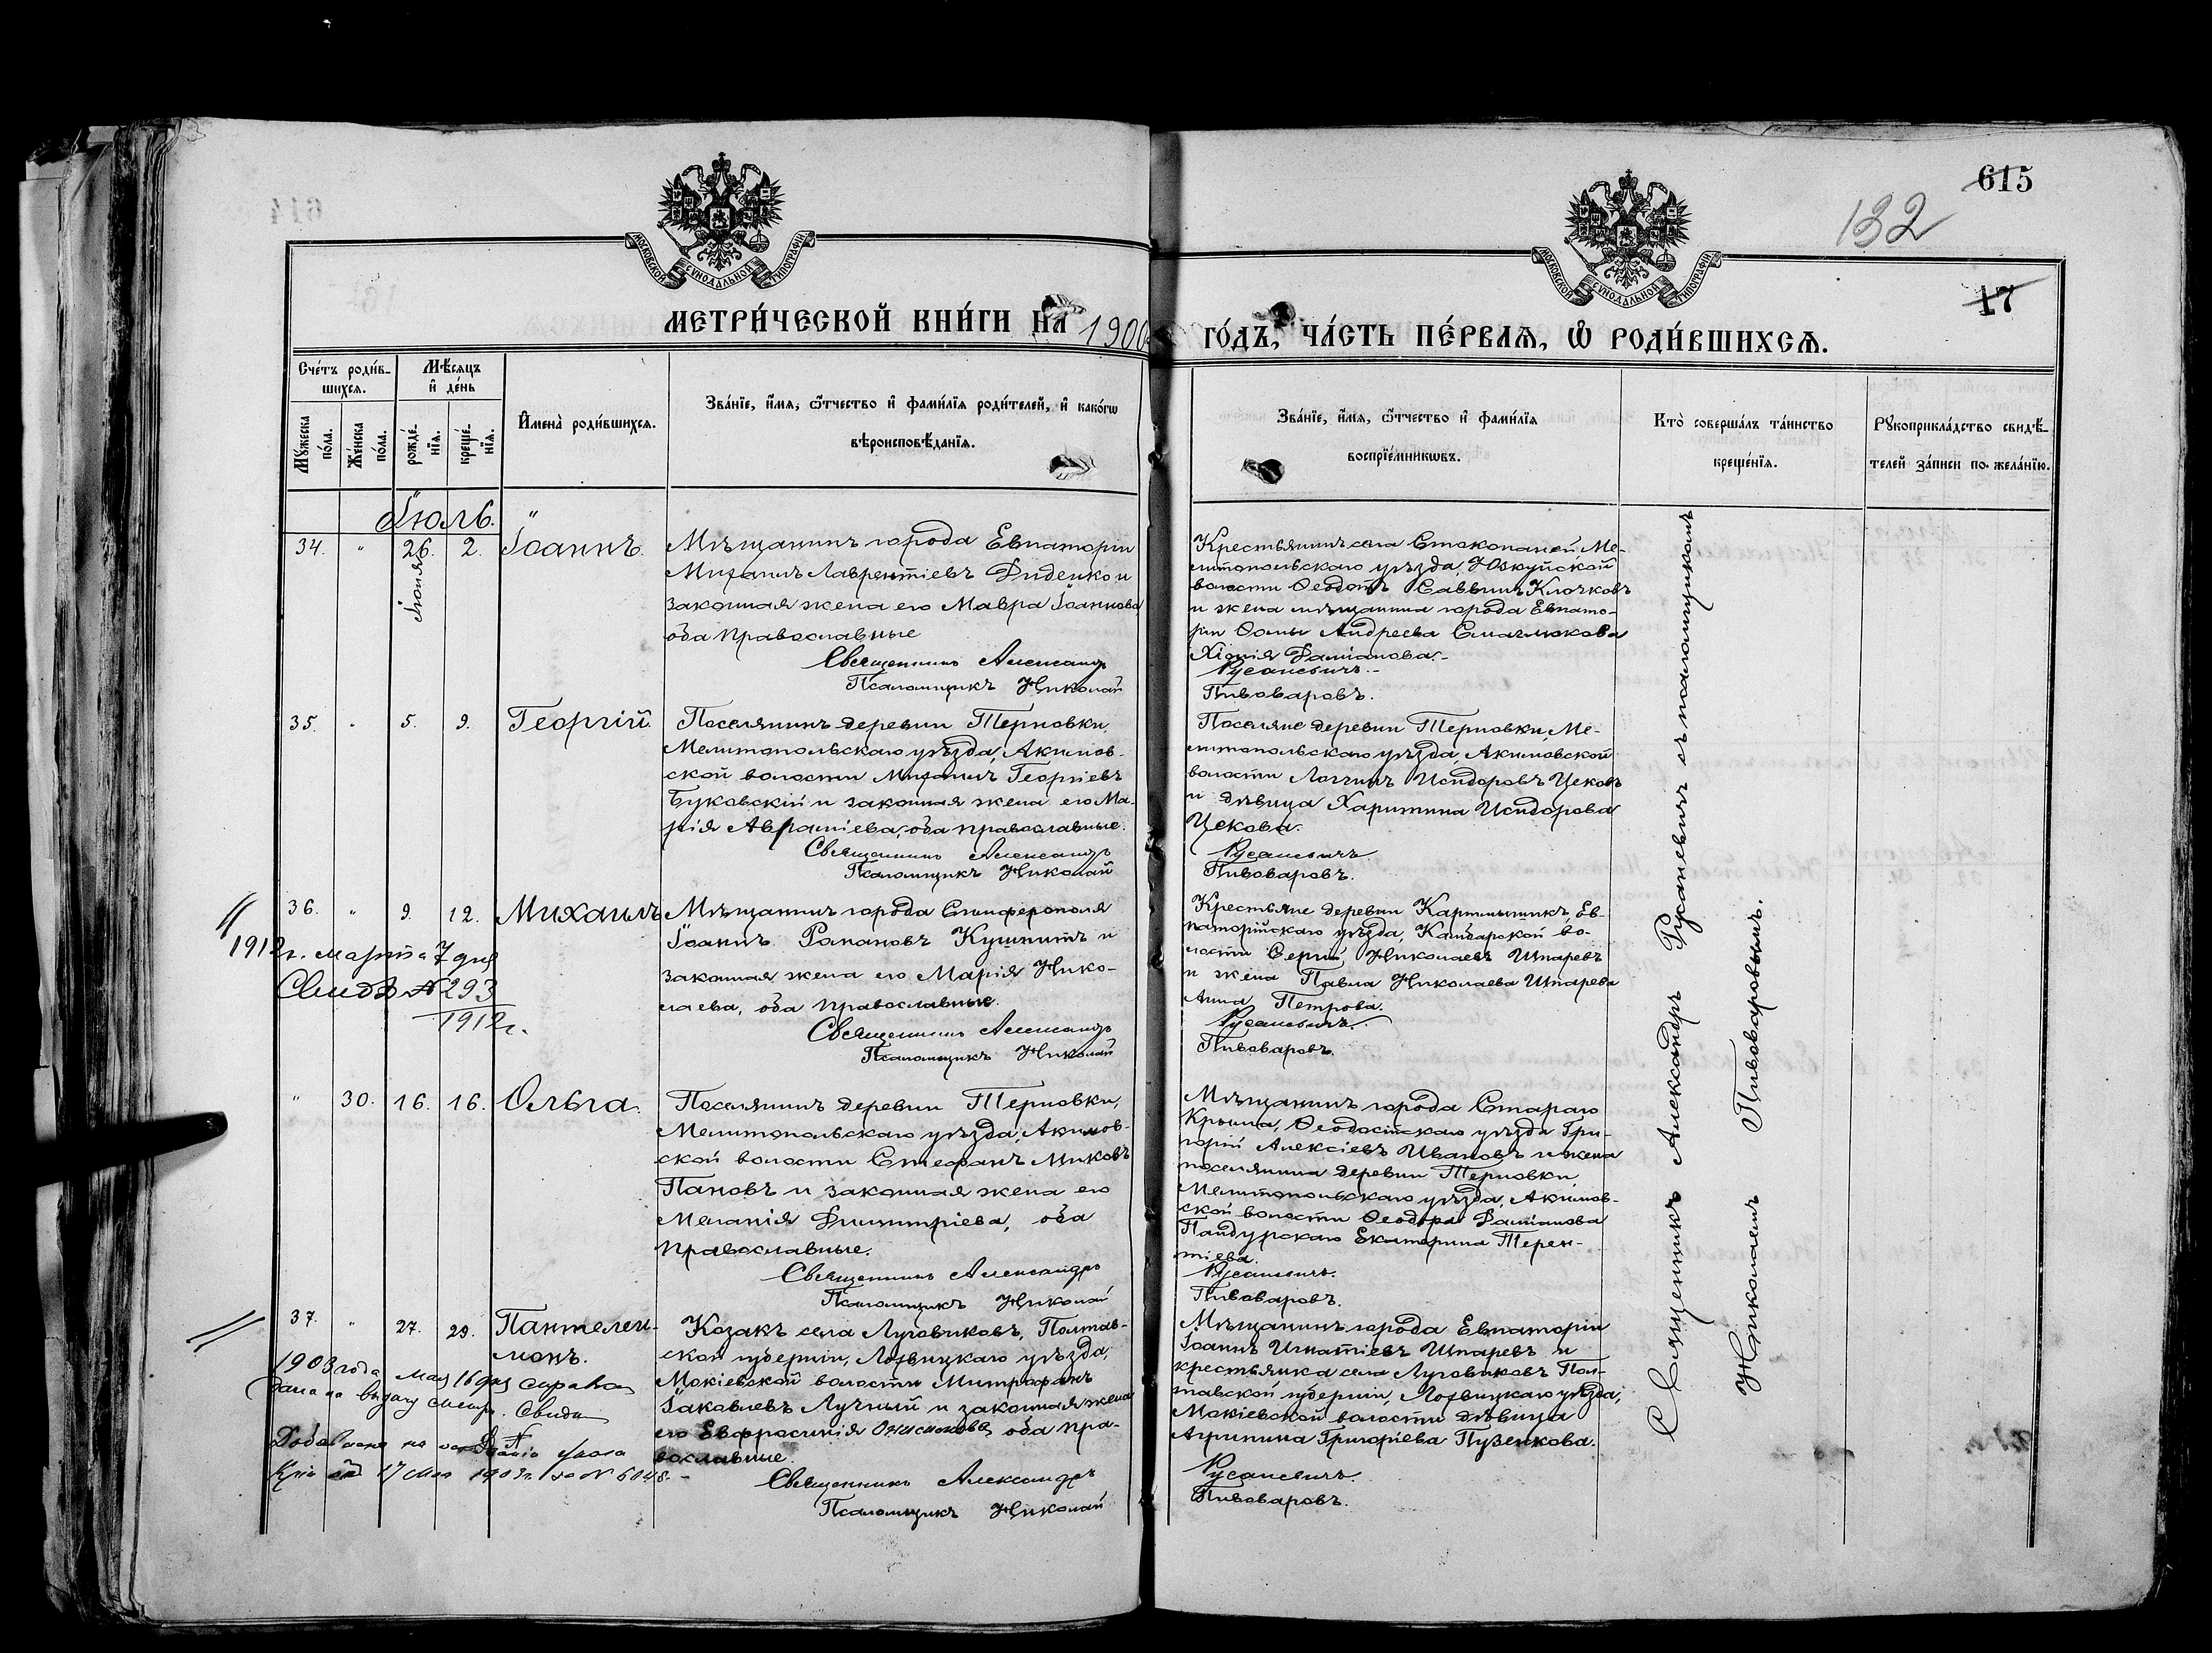 615
132
17
МОСКОВСКОЙ СѴНОДАЛЬНОЙ ТИПОГРАФІИ
МОСКОВСКОЙ СѴНОДАЛЬНОЙ ТИПОГРАФІИ
МЕТРИ́ЧЕСКОЙ КНИ́ГИ НА 1900
ГО́ДЪ, ЧА́СТЬ ПЕ́РВАѦ, Ѡ РОДИ́ВШИХСѦ.
Сче́тъ роди́в-
шихсѧ.
Мѣ́сѧцъ
и҆ де́нь
Мꙋ́жеска
по́ла.
Же́нска
по́ла.
рожде́-
нїѧ.
креще́-
нїѧ.
И҆мена̀ роди́вшихсѧ.
Зва́нїе, и҆́мѧ, ѻ҆́тчество и҆ фами́лїѧ роди́телей, и҆ како́гѡ
вѣроисповѣ́данїѧ.
Зва́нїе, и҆́мѧ, ѻ҆́тчество и҆ фами́лїѧ
воспрїе́мникѡвъ.
Кто̀ соверша́лъ та́инство
креще́нїѧ.
Рꙋкоприкла́дство свидѣ́-
телей за́писи по жела́нїю.
Іюль.
34. " 26. Іюня 2. Іоаннъ.
Мѣщанинъ города Евпаторіи
Михаилъ Лаврентіевъ Диденко и
законная жена его Мавра Іоаннова
оба православные
Священникъ Александръ
Псаломщикъ Николай
Крестьянинъ села Стокопаней Ме-
литопольскаго уѣзда, Юзкуйской
волости Ѳеодотъ Саввинъ Клочковъ
и жена мѣщанина города Евпато-
ріи Ѳомы Андреева
Хіонія Даміанова.
Русаневичъ.
Пивоваровъ.
35. " 5. 9. Георгій.
Поселянинъ деревни Терновки,
Мелитопольскаго уѣзда, Акимов-
ской волости Михаилъ Георгіевъ
Буковскій и законная жена его Ма-
рія Авраміева, оба православные.
Священникъ Александръ
Псаломщикъ Николай
Поселяне деревни Терновки, Ме-
литопольскаго уѣзда, Акимовской
волости Логгинъ Исидоровъ Цековъ
и дѣвица Харитина Исидорова
Цекова.
Русаневичъ.
Пивоваровъ.
36. " 9. 12. Михаилъ
1912 г. марта 7 дня
Свид № 293
1912 г.
Мѣщанинъ города Симферополя
Іоаннъ Романовъ Кушнитъ и
законная жена его Марія Нико-
лаева, оба православные.
Священникъ Александръ
Псаломщикъ Николай
Крестьяне деревни Ев-
паторійскаго уѣзда, во-
лости Сергій Николаевъ Шпаревъ
и жена Павла Николаева Шпарева
Анна Петрова.
Русаневичъ.
Пивоваровъ.
" 30. 16. 16. Ольга.
Поселянинъ деревни Терновки,
Мелитопольскаго уѣзда, Акимов-
ской волости Стефанъ Миковъ
Пановъ и законная жена его
Меланія Димитріева, оба
православные.
Священникъ Александръ
Псаломщикъ Николай
Мѣщанинъ города Стараго
Крыма, Ѳеодосійскаго уѣзда Гри-
горій Алексіевъ Ивановъ и жена
поселянина деревни Терновки,
Мелитопольскаго уѣзда, Акимов-
ской волости Ѳеодора Даміанова
Пандурскаго Екатерина Терен-
тіева.
Русаневичъ.
Пивоваровъ.
37. " 27. 29. Пантелей-
монъ.
1903 года мая 16 дня справка
дана на выдачу метр. Свид
17 мая 1903 г. за № 6048.
Козакъ села Луговиковъ, Полтав-
ской губерніи, Лохвицкаго уѣзда,
Мокіевской волости Митрофанъ
Іаковлевъ Лучный и законная жена
его Евфросинія Онисимова, оба пра-
вославные.
Священникъ Александръ
Псаломщикъ Николай
Мѣщанинъ города Евпаторіи
Іоаннъ Игнатіевъ Шпаревъ и
крестьянка села Луговиковъ Пол-
тавской губерніи, Лохвицкаго уѣзда,
Мокіевской волости дѣвица
Агрипина Григоріева Пузенкова.
Русаневичъ.
Пивоваровъ.
Священникъ Александръ Русаневичъ съ псаломщикомъ
Николаемъ Пивоваровымъ.